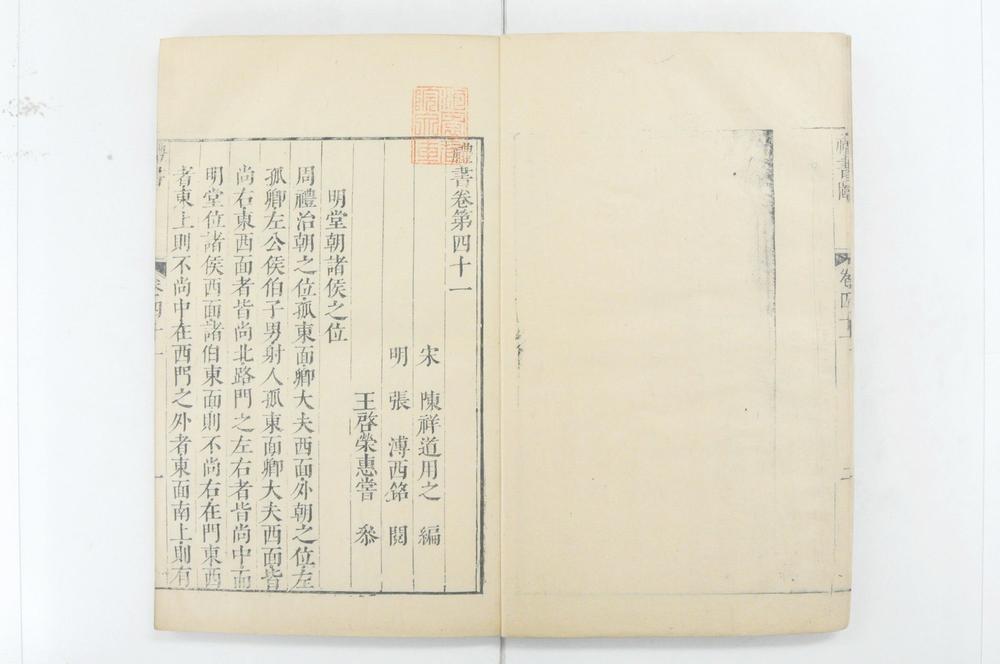 禮書
卷四十
禮書卷第四十一
宋 陳祥道用之 編
明 張 溥西銘 閱
王啓榮惠嘗 叅
明堂朝諸侯之位
周禮治朝之位孤東面卿大夫西面外朝之位左
孤卿左公侯伯子男射人孤東面卿大夫西面皆
尚右東西面者皆尚北路門之左右者皆尚中而
明堂位諸侯西面諸伯東面則不尚右在門東西
者東上則不尚中在西門之外者東面南上則有